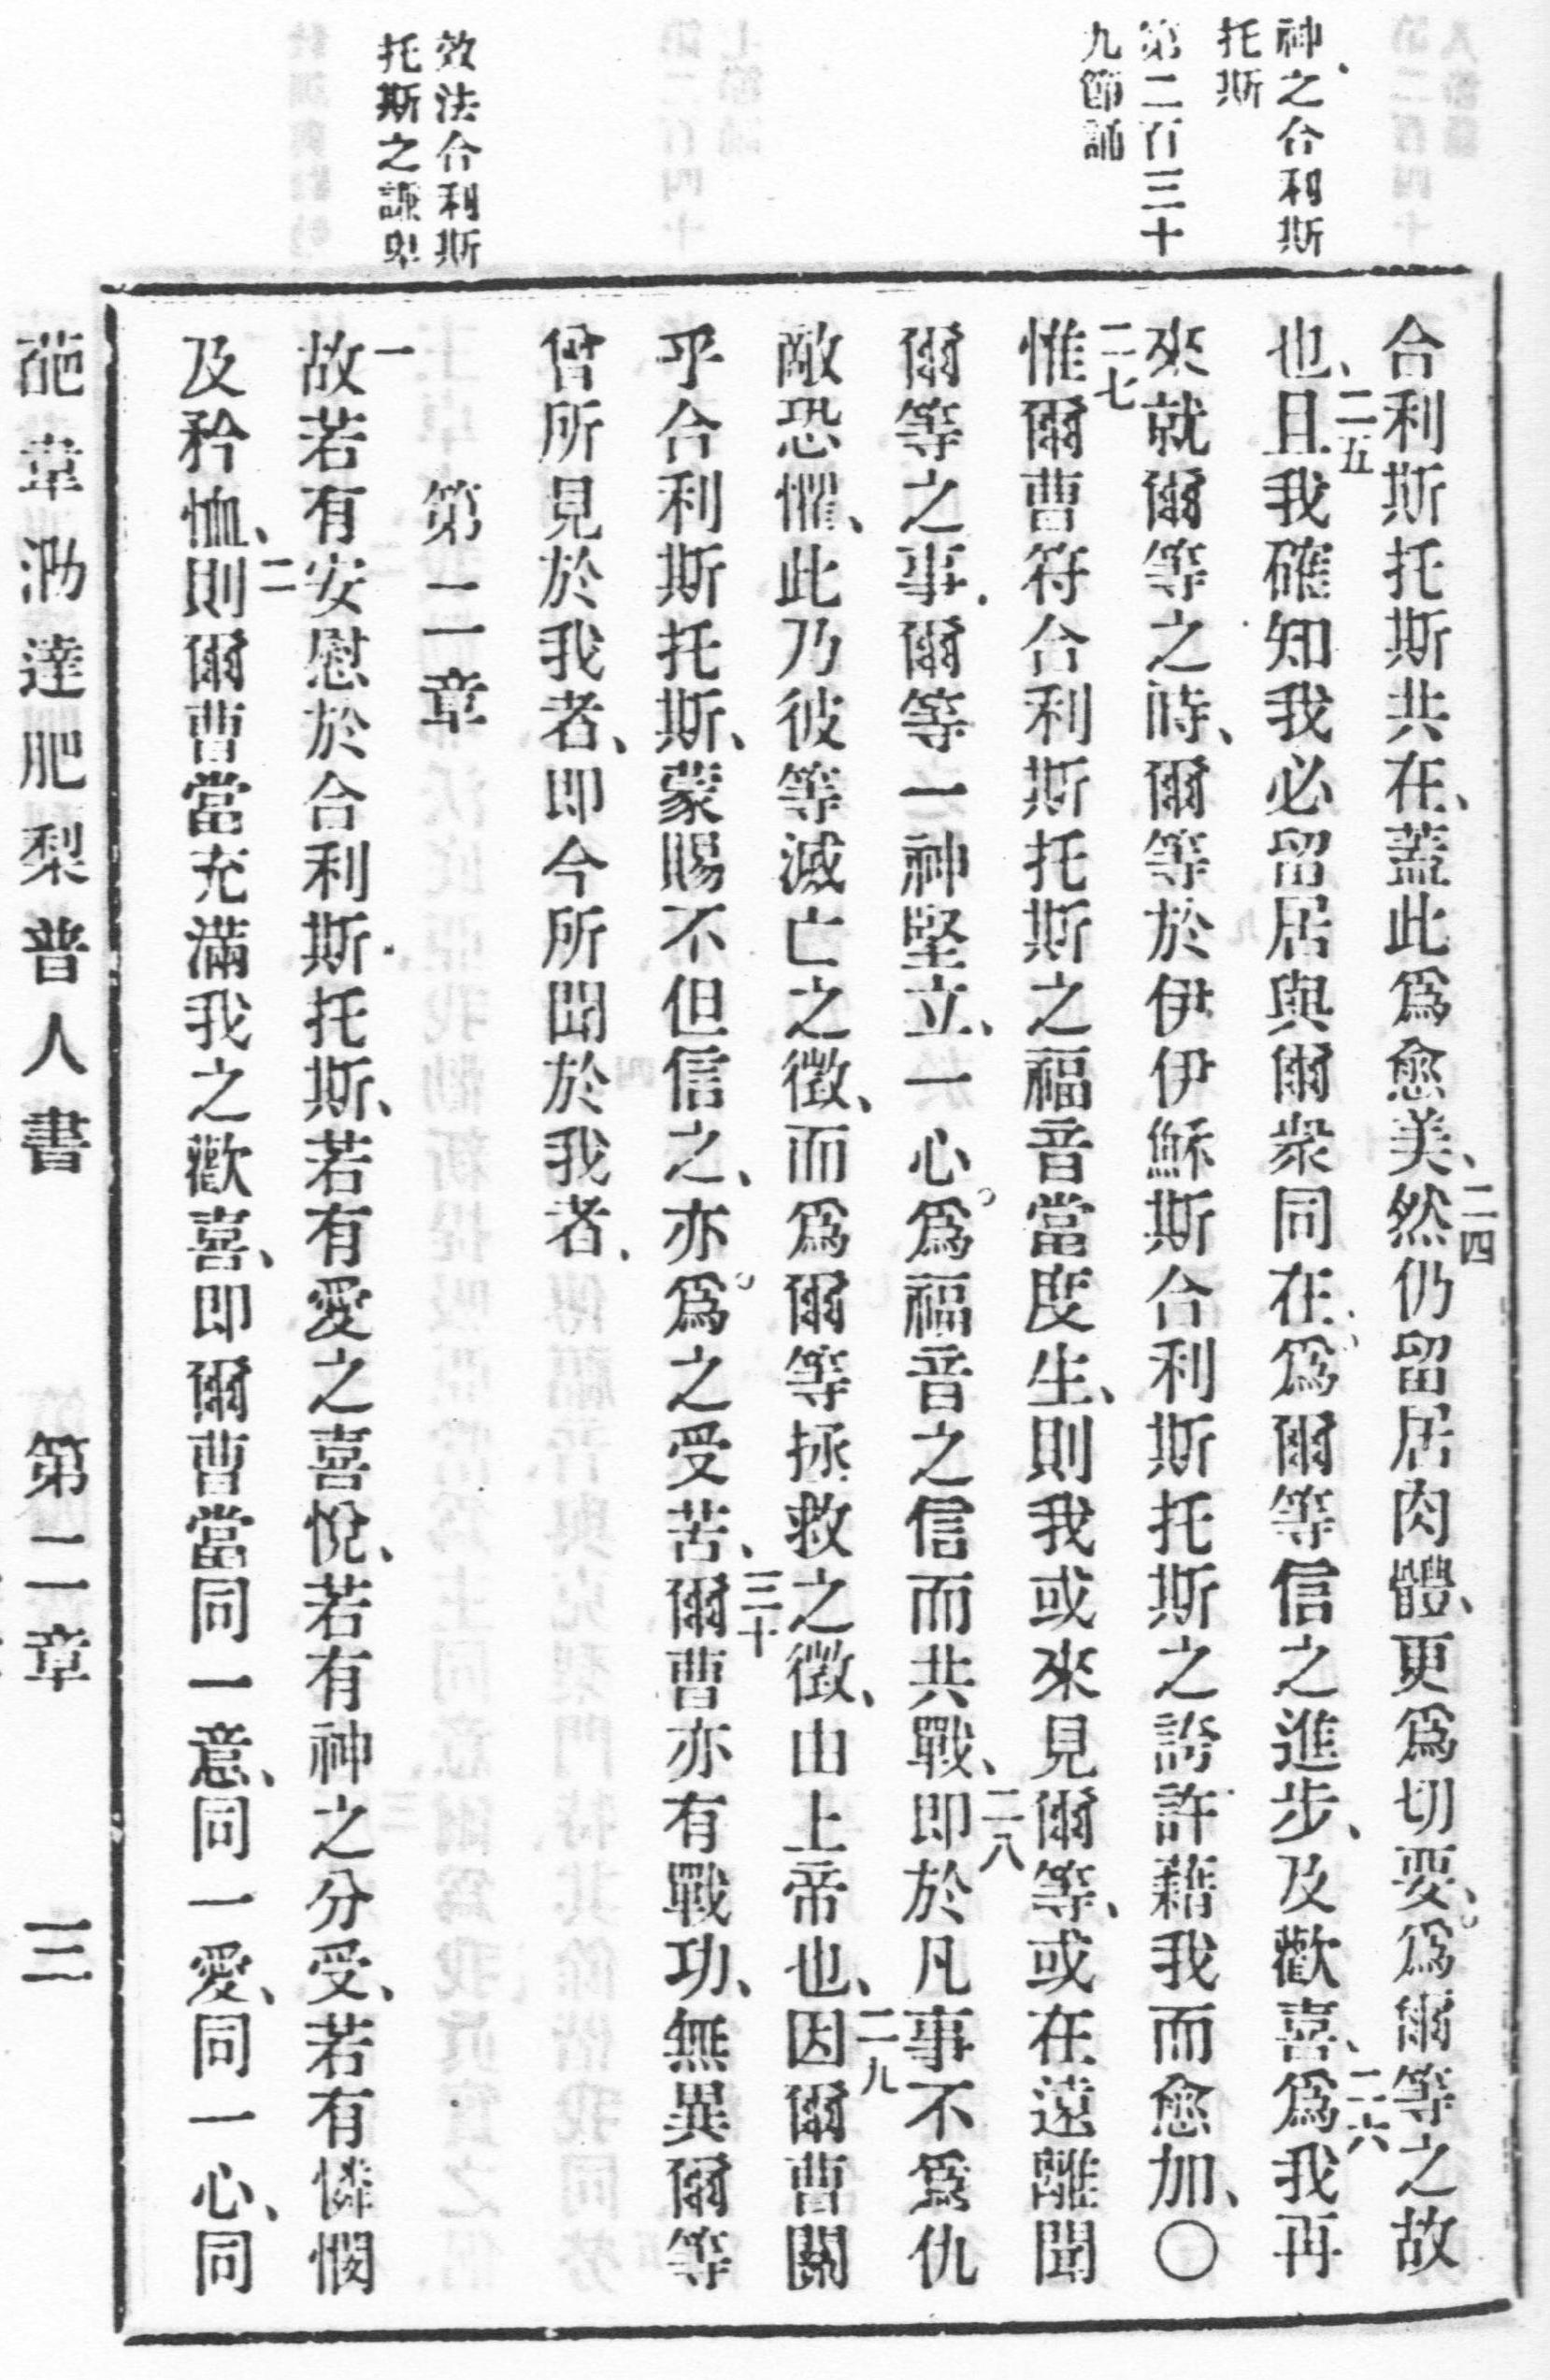 神之合利斯
托斯
第二百三十
九節誦
效法合利斯
托斯之謙卑
合利斯托斯共在、蓋此爲愈美、二四然仍留居肉體、更爲切要、爲爾等之故
也、二五且我確知我必留居與爾衆同在、爲爾等信之進步、及歡喜、二六爲我再
來就爾等之時、爾等於伊伊穌斯合利斯托斯之誇許藉我而愈加、〇
二七惟爾曹符合利斯托斯之福音當度生、則我或來見爾等、或在遠離聞
爾等之事、爾等一神堅立、一心爲福音之信而共戰、二八即於凡事不爲仇
敵恐懼、此乃彼等滅亡之徵、而爲爾等拯救之徵、由上帝也、二九因爾曹關
乎合利斯托斯、蒙賜不但信之、亦爲之受苦、三十爾曹亦有戰功、無異爾等
曾所見於我者、即今所聞於我者、
第二章
一故若有安慰於合利斯托斯、若有愛之喜悅、若有神之分受、若有憐憫
及矜恤、二則爾曹當充滿我之歡喜、即爾曹當同一意、同一愛、同一心、同
葩韋泐達肥梨普人書 第二章 三